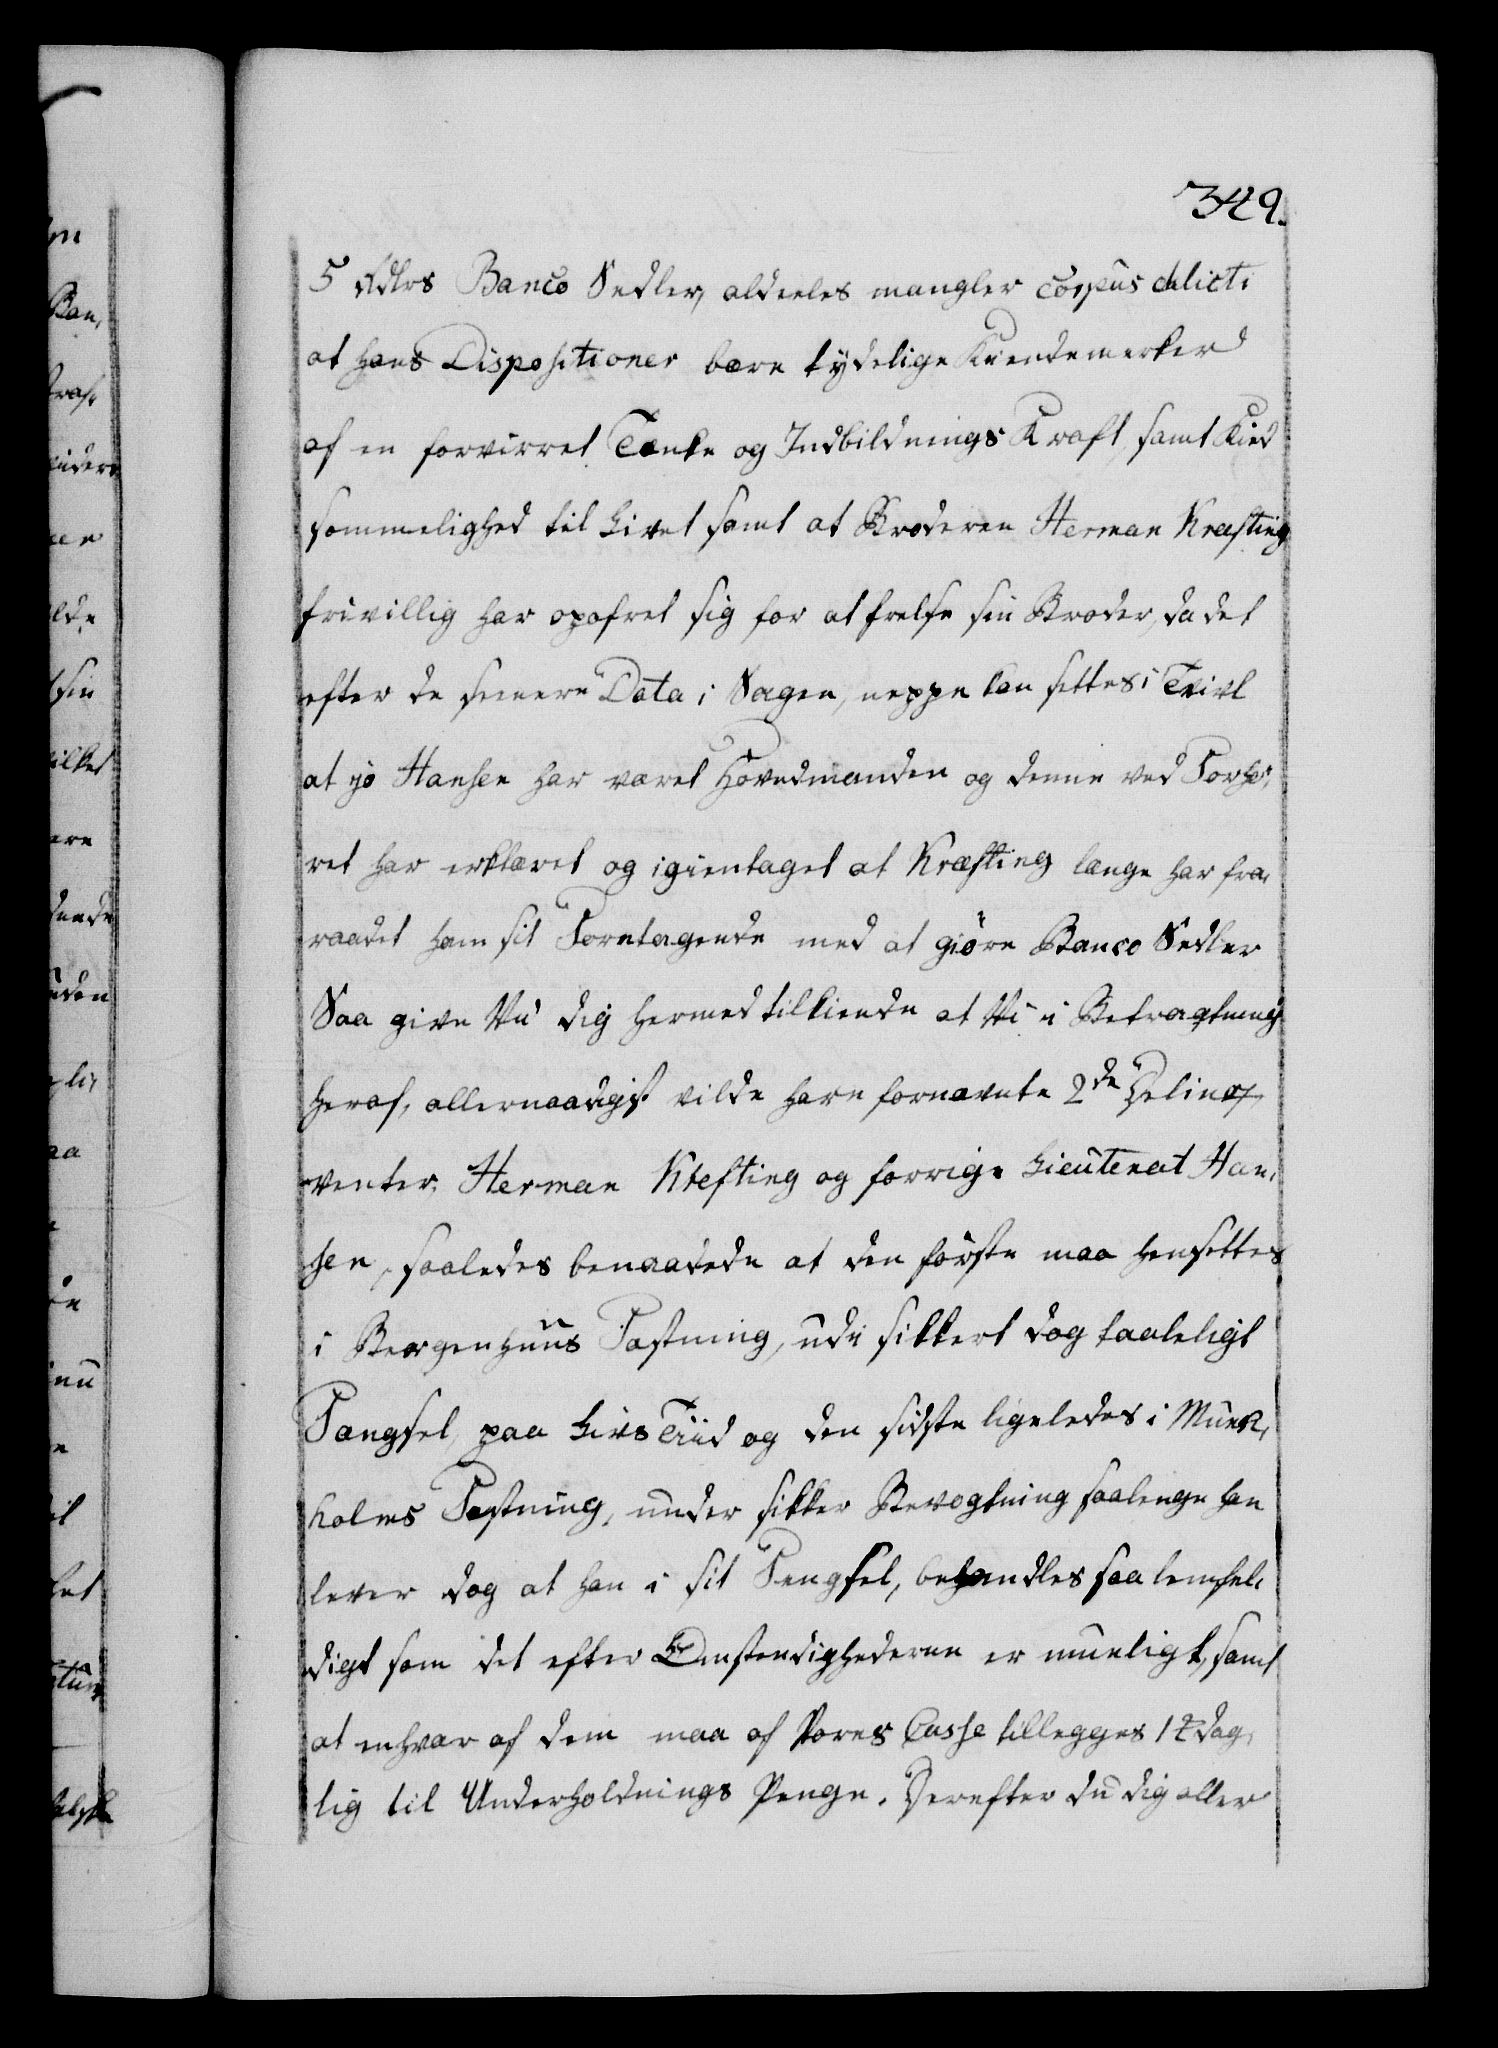 349.
5 Rdlrs Banco Sedler, aldeeles mangler corpus delicti
at hans Dispositioner bære tydelige Kiendemerker
af en forvirret Tænke og Indbildnings Kraft, samt Kied
sommelighed til Livet samt at Broderen Herman Krefting
frivillig har opofret sig for at frelse sin Broder, da det
efter de senere Data i Sagen, neppe kan settes i Tvivl
at jo Hansen har været Hovedmanden og denne ved Forhø,
ret har erklæret og igientaget at Kræfting længe har fra,
raadet ham sit Foretagende med at giøre Banco Sedler
Saa give Vii dig hermed tilkiende at Vi i Betragtning
heraf, allernaadigst vilde have fornævnte 2de Delinqv
venter, Herman Krefting og forrige Lieutenat Han,
sen, saaledes benaadede at den første maa hensettes
i Bergenhuus Fæstning, udi sikkert dog taaleligt
Fængsel, paa Livs Tiid og den sidste ligeledes i Munk,
holms Festning, under sikker Bevogtning saalenge han
lever dog at han i sit Fengsel, behandles saa lemfel,
digt som det efter Omstendighederne er mueligt, samt
at enhver af dem maa af Vores Casse tillegges 1 ℔ dag,
lig til Underholdnings Penge. Derefter du dig aller